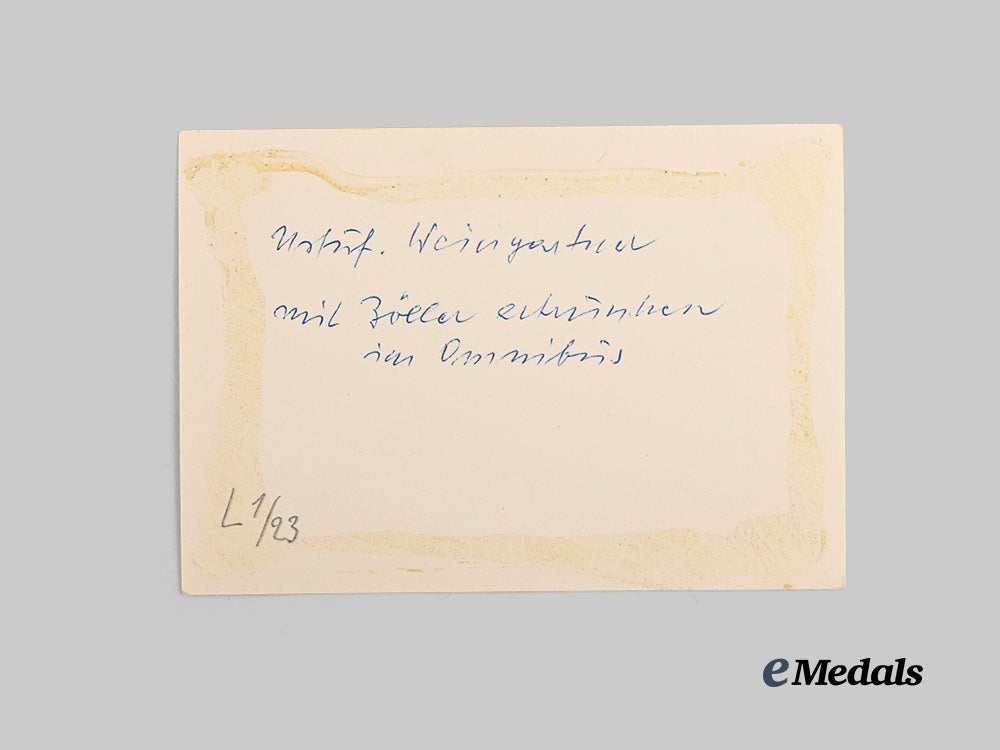 Ustuf. Weingartner
mit Zöller ertrunken
im Omnibus
L 1/23
eMedals